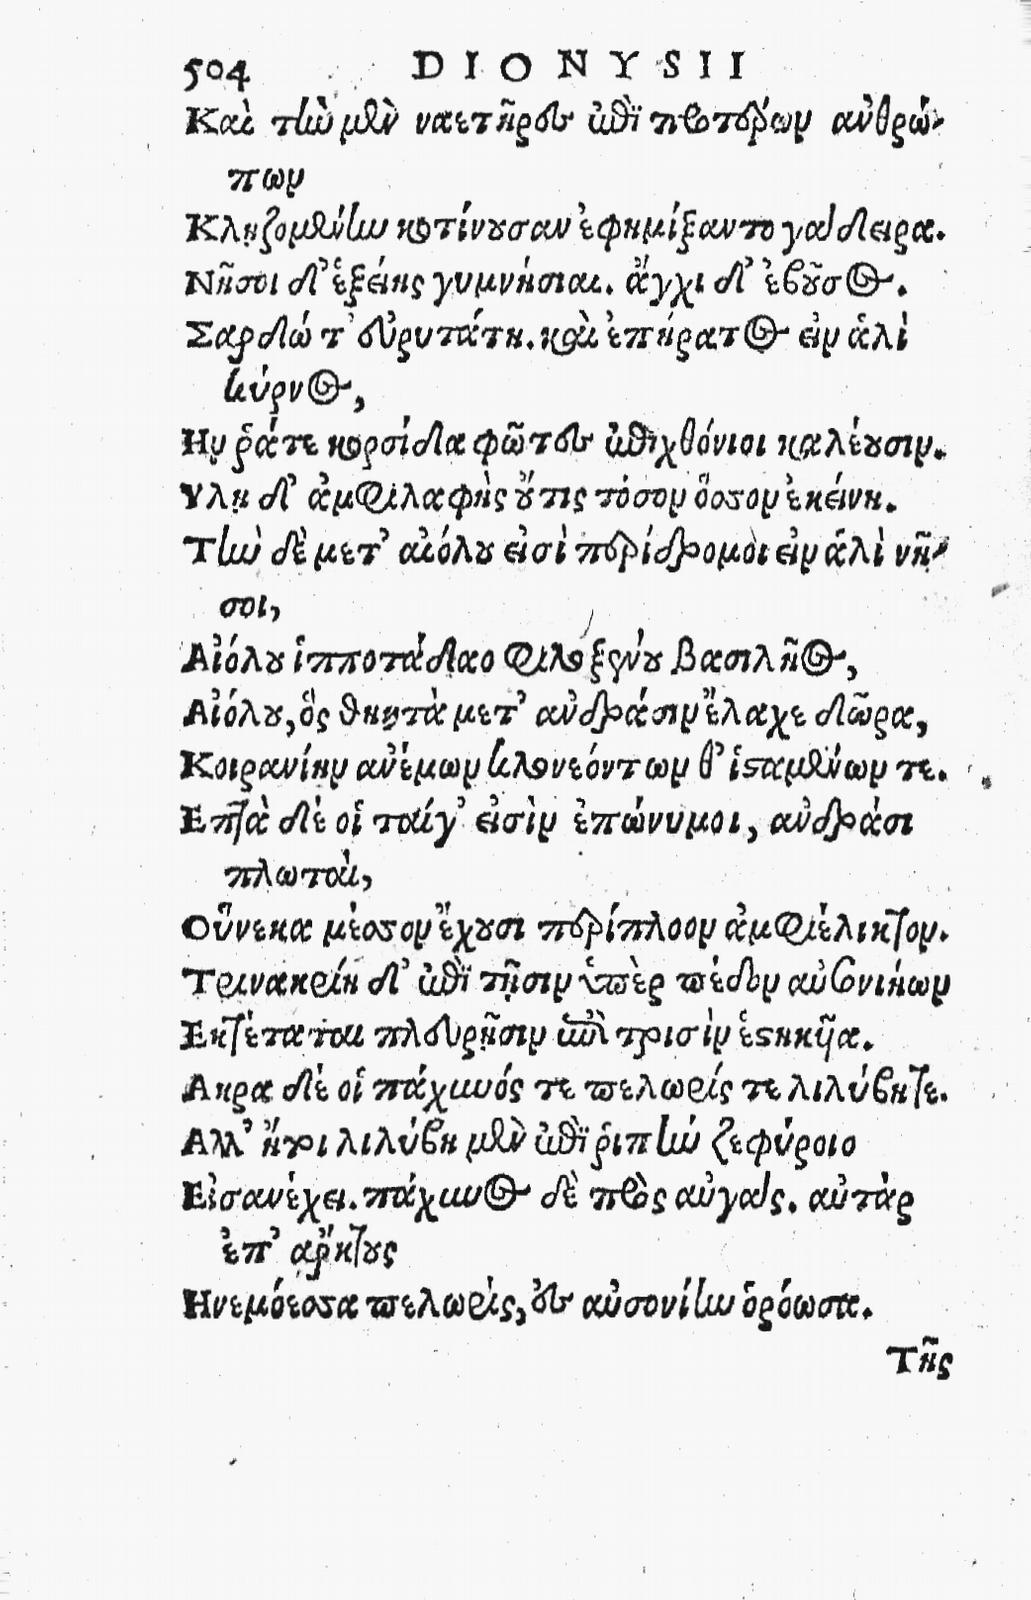 504 DIONYSII
Καὶ τὴν μὲν ναετῆρες ἐπὶ προτέρων ἀνθρώ-
πων
Κληζομένην κοτίνουσαν ἐφημίξαντο γάδειρα.
Νῆσοι δ' ἑξείης γυμνήσιαι. ἄγχι δ' ἐβοῦσος.
Σαρδώ τ' εὐρυτάτη. καὶ ἐπήρατος εἰν ἁλὶ
κύρνος,
Ην ῥάτε κορσίδα φῶτες ἐπιχθόνιοι καλέουσιν.
Υλη δ' ἀμφιλαφὴς οὔτις τόσον ὅσσον ἐκείνη.
Τὴν δὲ μετ' αἰόλου εἰσὶ περίδρομοι εἰν ἁλὶ νῆ-
σοι,
Αἰόλου ἱπποτάδαο φιλοξείνου βασιλῆος,
Αἰόλου, ὃς θηητὰ μετ' ἀνδράσιν ἔλαχε δῶρα,
Κοιρανίην ἀνέμων κλονεόντων θ' ἱσταμένων τε.
Επτὰ δέ οἱ ταίγ' εἰσὶν ἐπώνυμοι, ἀνδράσι
πλωταὶ,
Οὕνεκα μέσσον ἔχουσι περίπλοον ἀμφιέλικτον.
Τρινακρίη δ' ἐπὶ τῇσιν ὑπὲρ πέδον αὐσονιήων
Εκτέταται πλευρῇσιν ἐπὶ τρισὶν ἑστηκῆα.
Ακρα δέ οἱ πάχυνός τε πελωρίς τε λιλύβητε.
Αλλ' ἤτοι λιλύβη μὲν ἐπὶ ῥιπὴν ζεφύροιο
Εἰσανέχει. πάχυνος δὲ πρὸς αὐγάς. αὐτὰρ
ἐπ' ἄρκτους
Ηνεμόεσσα πελωρὶς, ἐς αὐσονίην ὁρόωσα.
Τῆς